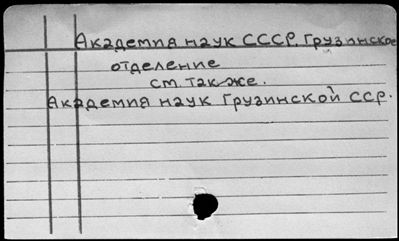 Академия наук СССР. Грузинское
отделение
см. также.
Академия наук Грузинской ССР.